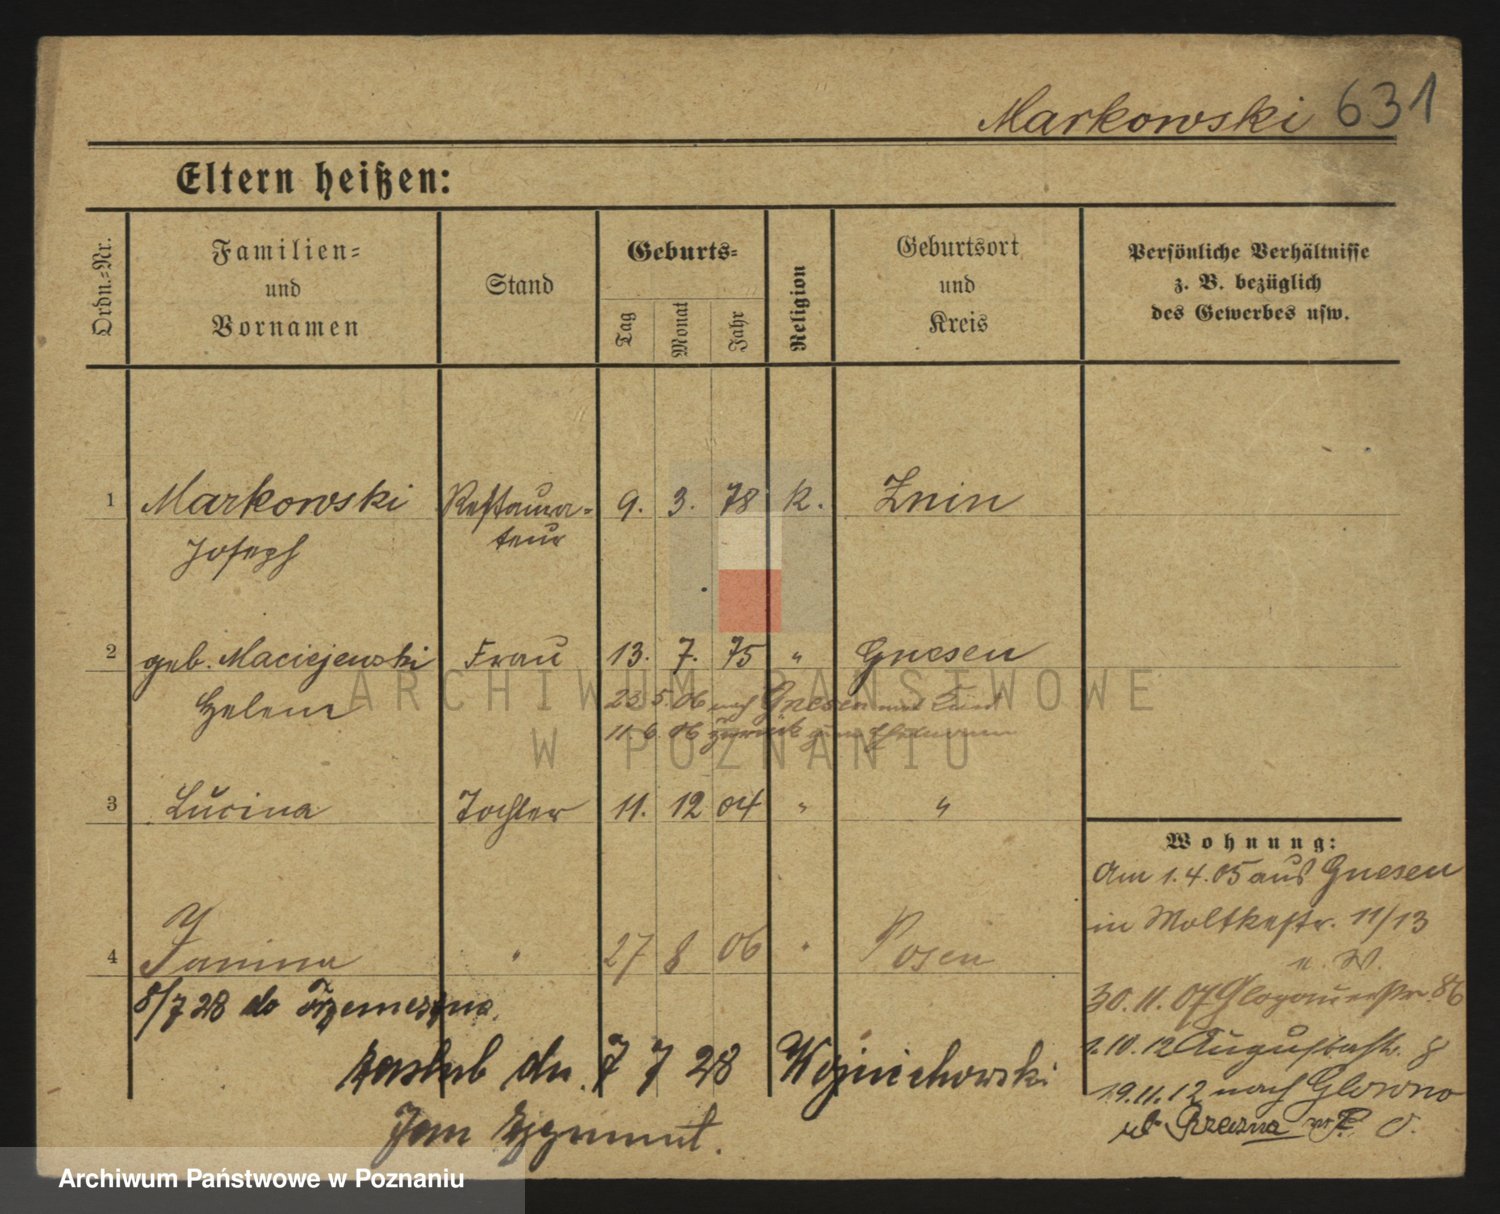 Markowski 631
Eltern heißen:
Ordn.-Nr.
Familien- und Vornamen
Stand
Geburts-
Tag
Monat
Jahr
Religion
Geburtsort und Kreis
Persönliche Verhältnisse z. B. bezüglich des Gewerbes usw.
1 Markowski Restaura- 9. 3. 78 K. Znin
Joseph teur
2 geb. Maciejewski Frau 13. 7. 75 " Gnesen
Helene 23.5.06 nach Gnesen
11.6.06 zurück
3 Lucina Tochter 11. 12 04 " "
Wohnung:
Am 1.4.05 aus Gnesen
in Moltkestr. 11/13
4 Janina " 27 8 06 " Posen
n. W.
30.11.07 Glogauerstr. 86
8/7 28 do Trzemeszna.
1.10.12 Augustastr. 8
zaslub dn. 7 7 28 Wojciechowski
19.11.12 nach Glowno
Jan Zygmunt.
ul.
ARCHIWUM PAŃSTWOWE
W POZNANIU
Archiwum Państwowe w Poznaniu